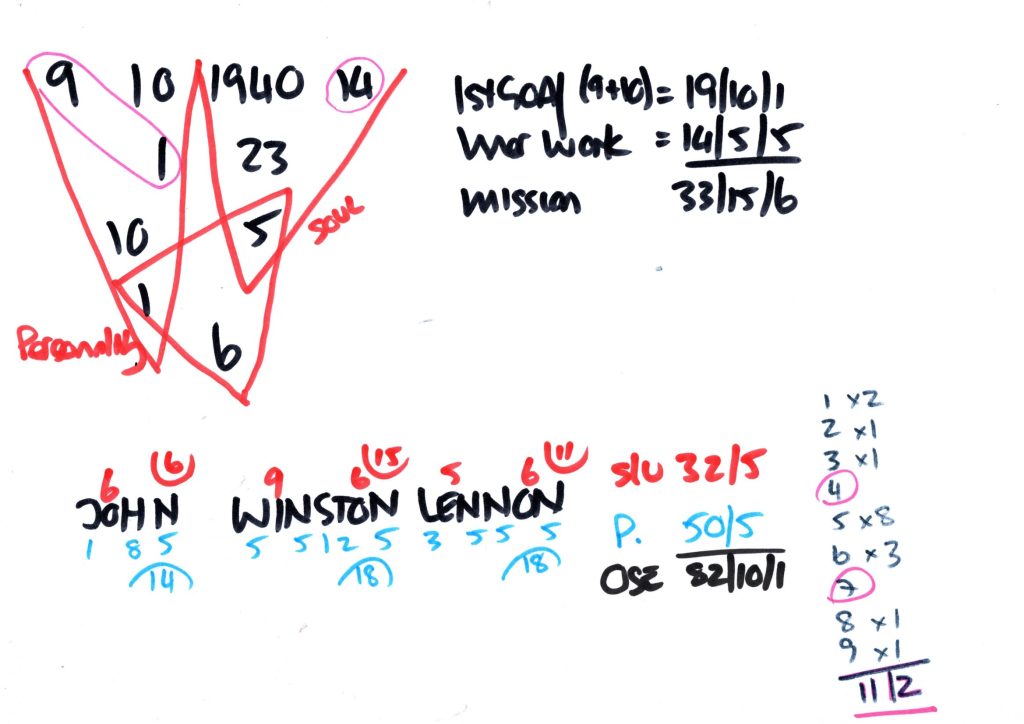 9 10 1940 14
1 23
10 5 soul
1
Personality 6
1st GOAL (9+10) = 19/10/1
Inner work = 14/5/5
mission 33/15/6
6 (6) 9 6 (15) 5 6 (11) S/U 32/5
JOHN WINSTON LENNON
1 8 5 5 5 1 2 5 3 5 5 5 P. 50/5
14 18 18 OSE 82/10/1
1 x2
2 x1
3 x1
4
5 x8
6 x3
7
8 x1
9 x1
11/2